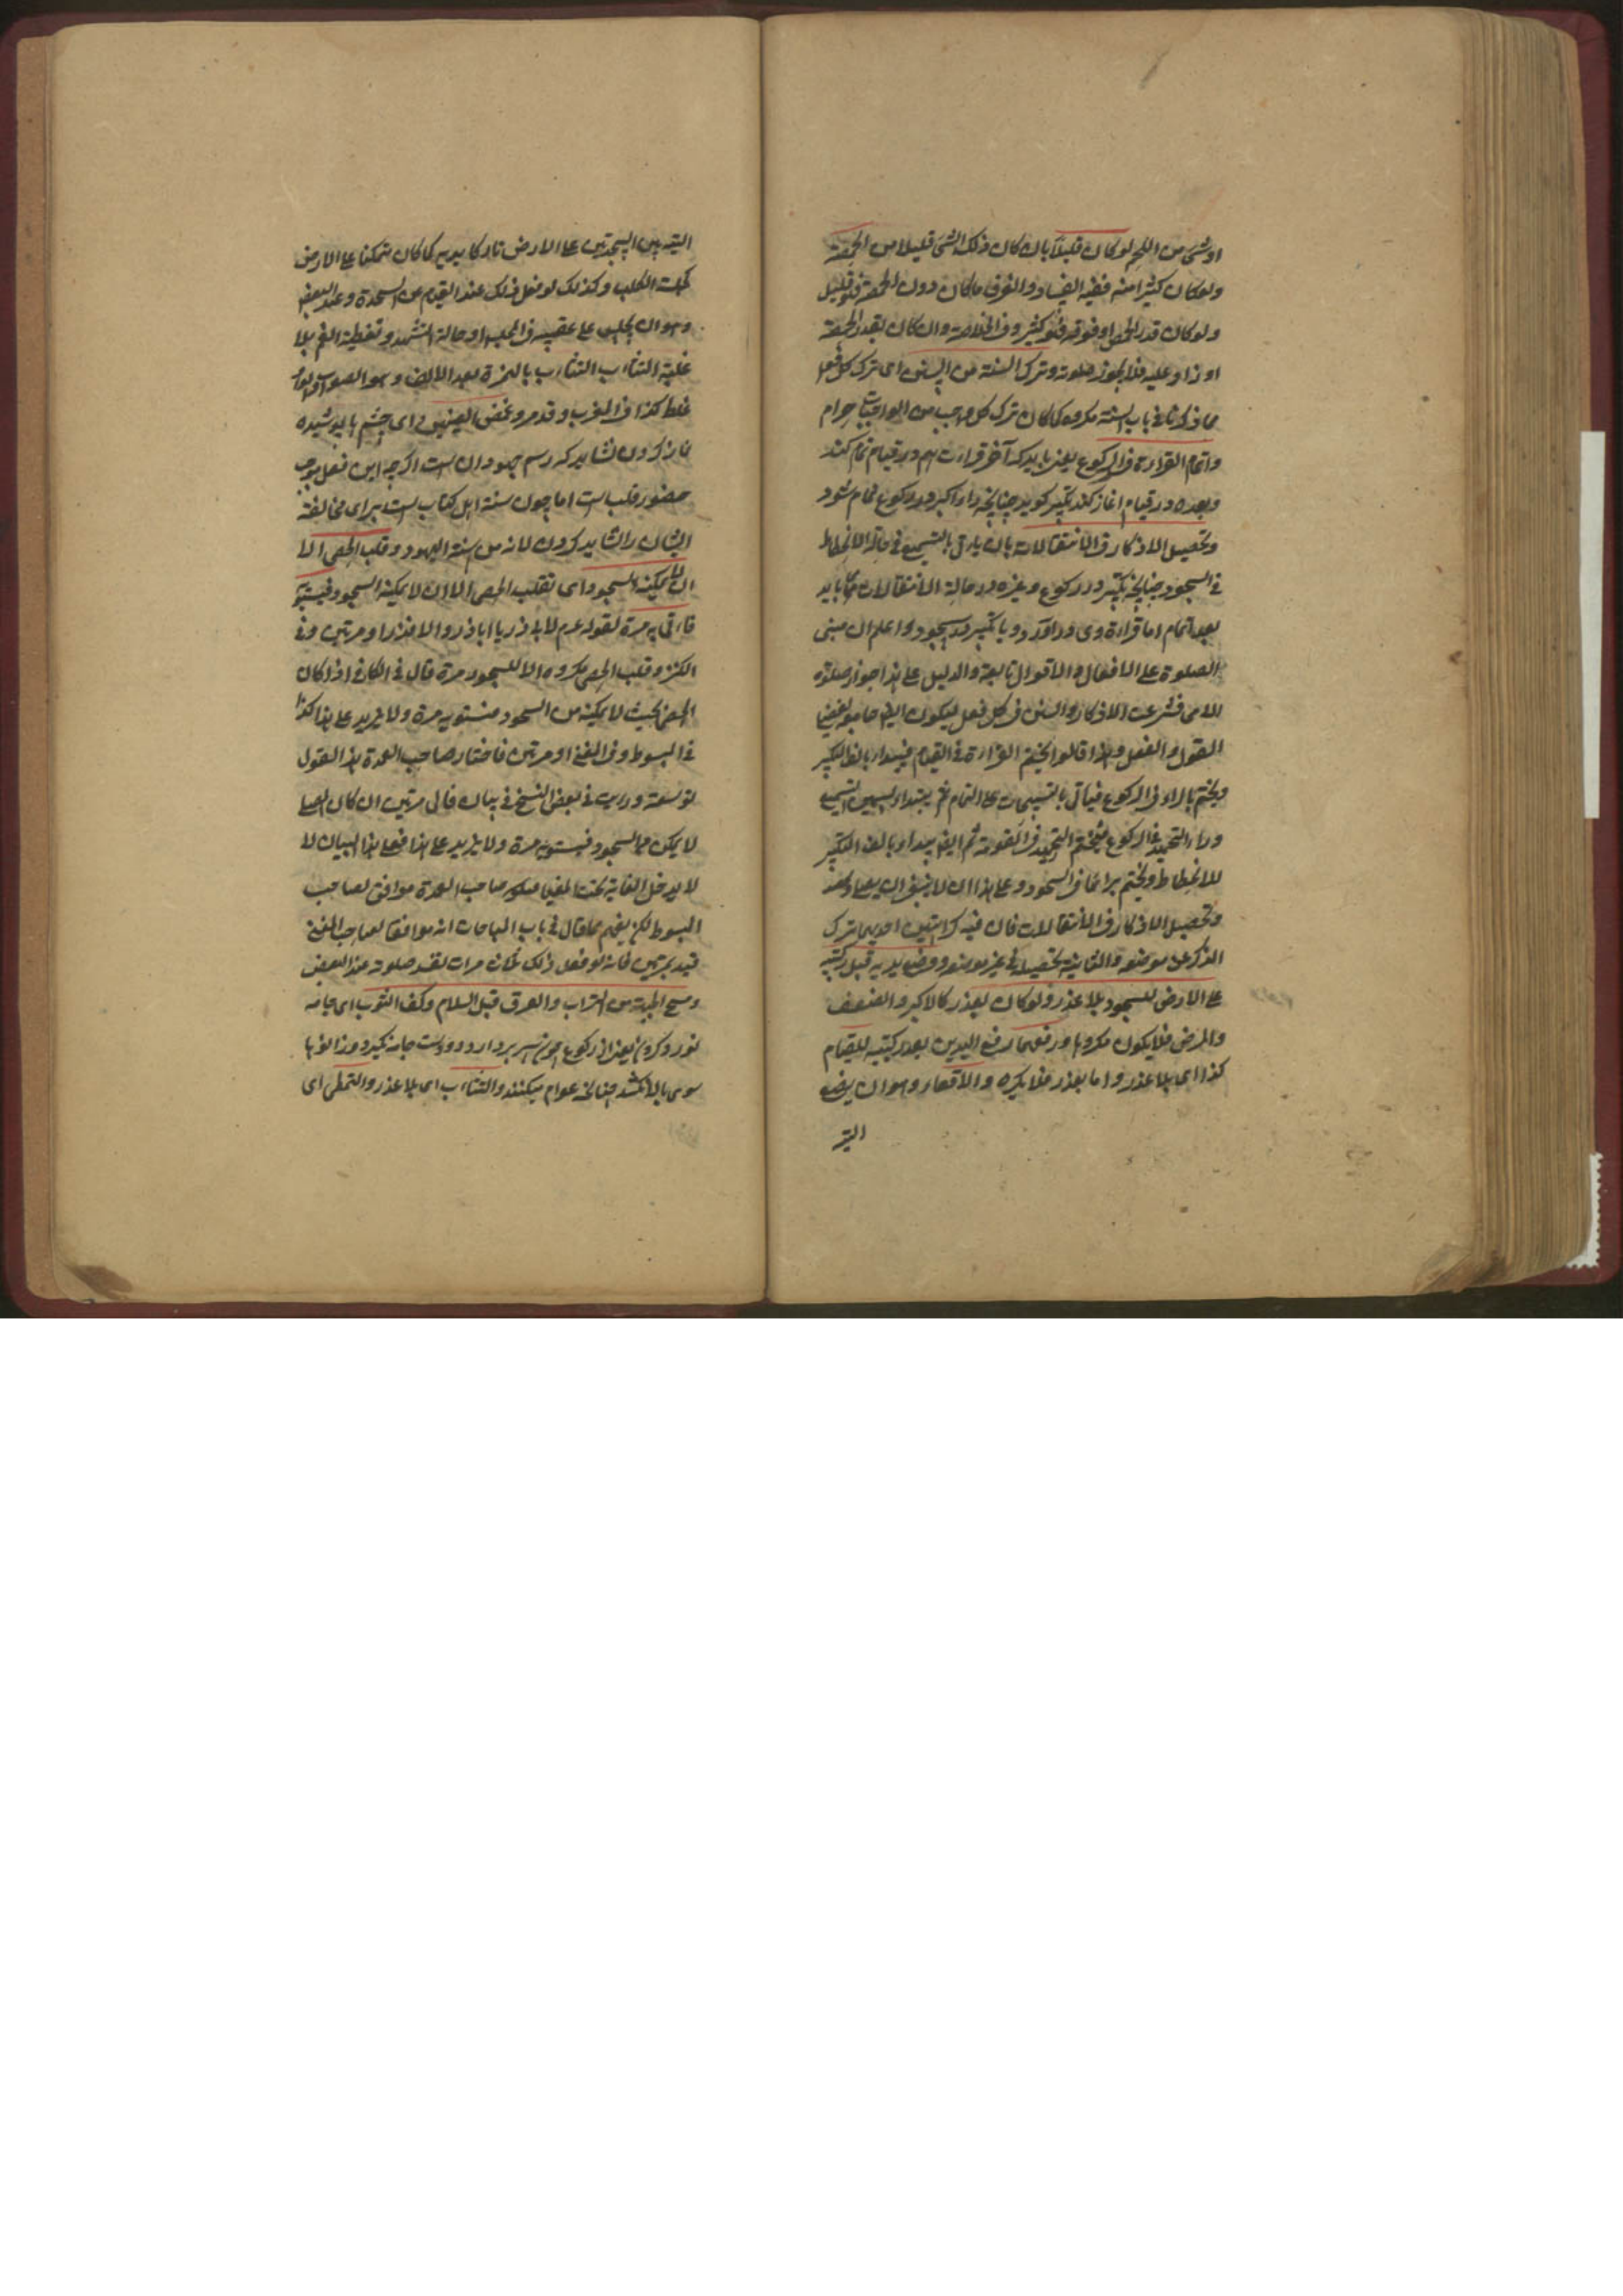 او شئ من اللحم لو كان قليلا بان كان ذلك الشئ قليلا من الحمصة
ولو كان كثيرا منه ففيه الفساد والفرق ما كان دون الحمصة فهو قليل
ولو كان قدر الحمص او فوقه فهو كثير وفى الخلاصة وان كان بقدر الحمصة
او زاد عليه فلا يجوز صلوته وترك السنة من السنن اى ترك كل فعل
مما ذكرنا فى باب السنة مكروه كما كان ترك كل واجب من الواجبات حرام
واتمام القراءة فى الركوع يعنى بايد كه آخر قراءت هم در قيام تمام كند
وبعده در قيام اغاز كند تكبير كويد چنانچه راء اكبر در ركوع تمام شود
وتحصيل الاذكار فى الانتقالات بان ياتى بالتسميع فى حالة الانحطاط
فى السجود چنانچه تكبير در ركوع وغيره در حالة الانتقالات مى بايد
بعد اتمام اما قراءة وى در آورد و يا تكبير در سجود واعلم ان مبنى
الصلوة على الافعال والاقوال تابعة والدليل على هذا جواز صلوة
الامى فشرعت الاذكار والسنن فى كل فعل ليكون ايضا جامع لفضيلة
القول والفعل ولهذا قالوا يختم القراءة فى القيام فيبداء بالف التكبير
ويختم بالراء فى الركوع فياتى بالتسبيحات على التمام ثم يبتداء بسين التسميع
وراء التحميد فى الركوع فيختم التحميد فى القومة ثم ايضا يبداء بالف التكبير
للانحطاط ويختم برائها فى السجود وعلى هذا ان لا ينبغى ان يعيد بعد
وتحصيل الاذكار فى الانتقالات فان فيه كراهتين احديهما ترك
الذكر عن موضعه والثانية تحصيله فى غير موضعه ووضع يديه قبل ركبتيه
على الارض للسجود بلا عذر ولو كان بعذر كالكبر والضعف
والمرض فلا يكون مكروها ورفعهما رفع اليدين بعد ركبتيه للقيام
كذا اى بلا عذر واما بعذر فلا يكره والاقعاء وهو ان يضع
اليتـ
اليتيه بين السجدتين على الارض تاركا يديه كما كان متمكنا على الارض
كجلسة الكلب وكذلك لو فعل ذلك عند القيام من السجدة وعند البعض
وهو ان يجلس على عقبيه فى الجلسة او حالة التشهد وتغطية الفم بلا
غلبة التثاءب التثاءب بالهمزة بعد الالف وهو الصواب والواو
غلط كذا فى المغرب وقد مر وغمض العينين اى چشم را پوشيده
نماز كردن نشايد كه رسم جهودان است اگرچه اين فعل موجب
حضور قلب است اما چون سنة اهل كتاب است براى مخالفة
ايشان را نشايد كردن لانه من سنة اليهود وقلب الحصى الا
ان لا يمكنه السجود اى تقليب الحصى الا ان لا يمكنه السجود فيسويه
فاتى به مرة لقوله عم لابى ذر يا اباذر والا فذر او مرتين وفى
الكنز وقلب الحصى مكروه الا للسجود مرة قال فى الكافى اذا كان
الحصى بحيث لا يمكنه من السجود فيستويه مرة ولا يزيد على هذا كذا
فى المبسوط وفى المغنى او مرتين فاختار صاحب العمدة هذا القول
توسعة ورايت فى بعض النسخ فى بيان قال مرتين ان كان الحصا
لا يمكن من السجود فيستويه مرة ولا يزيد على هذا فعلى هذا البيان لا
لا يدخل الغاية تحت المغيا فيكون صاحب العمدة موافق لصاحب
المبسوط لكن يفهم مما قال فى باب المباحات انه موافقا لصاحب المغنى
قيد بمرتين فانه لو فعل ذلك ثلث مرات تفسد صلوته عند البعض
ومسح الجبهة من التراب والعرق قبل السلام وكف الثوب اى جامه
نوردكردن يعنى از ركوع چون سر بردارد دو دست جامه نگيرد و زانوها
سوى بالا نكشد چنانچه عوام ميكنند والتثاءب اى بلا عذر والتمطى اى